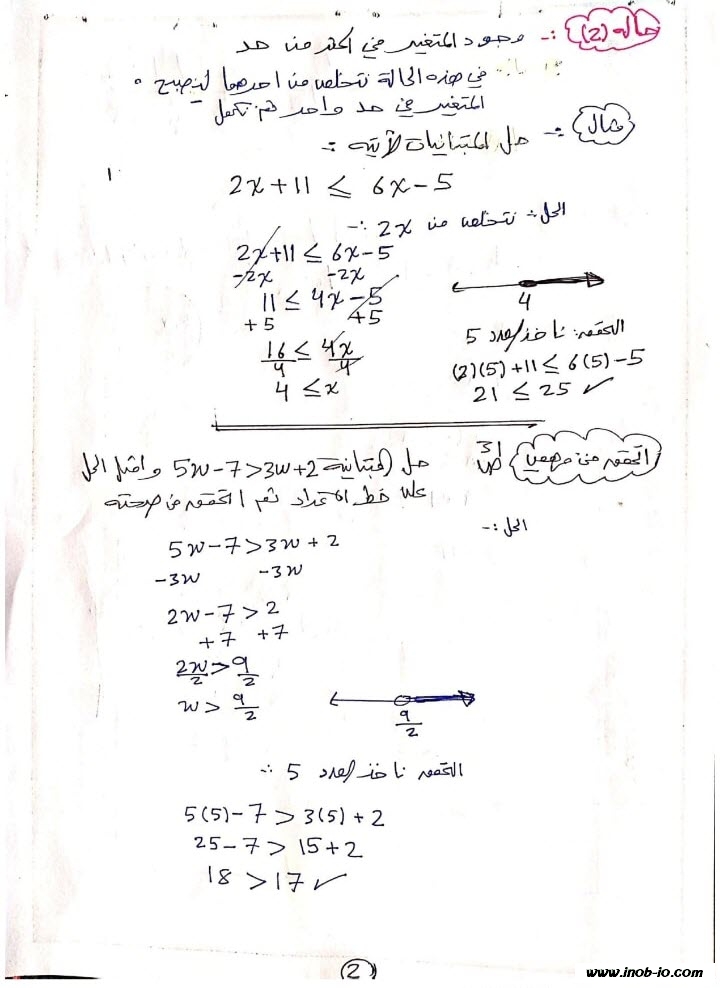 حالة (2) :- وجود المتغير في اكثر من حد
في هذه الحالة نتخلص من احدهما ليصبح
المتغير في حد واحد ثم نكمل
مثال :- حل المتباينات الآتية :-
2x + 11 ≤ 6x - 5
الحل :- نتخلص من 2x :-
2x + 11 ≤ 6x - 5
-2x -2x
11 ≤ 4x - 5
+5 +5
16/4 ≤ 4x/4
4 ≤ x
4
التحقق: نأخذ العدد 5
(2)(5) + 11 ≤ 6(5) - 5
21 ≤ 25 ✓
التحقق من فهمي ص 31
حل المتباينة 5w - 7 > 3w + 2 وامثل الحل
على خط الاعداد ثم اتحقق من صحته
الحل :-
5w - 7 > 3w + 2
-3w -3w
2w - 7 > 2
+7 +7
2w/2 > 9/2
w > 9/2
9/2
التحقق نأخذ العدد 5 :-
5(5) - 7 > 3(5) + 2
25 - 7 > 15 + 2
18 > 17 ✓
2
www.inob-jo.com